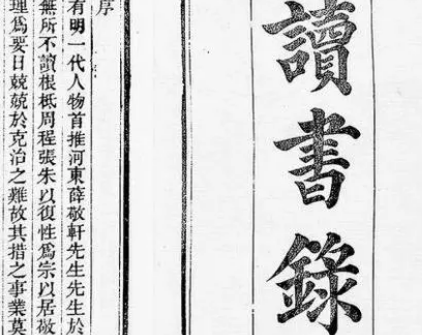 讀書錄
序
有明一代人物首推河東薛敬軒先生先生於
無所不讀根柢周程張朱以復性爲宗以居敬
理爲要日兢兢於克治之難故其措之事業莫